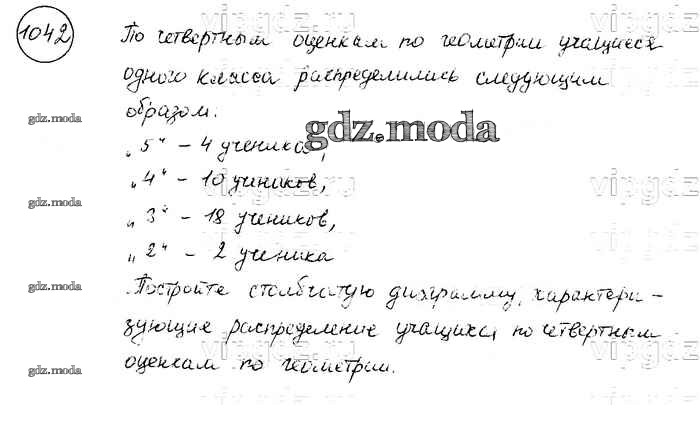 1042
По четвертным оценкам по геометрии учащиеся
одного класса распределились следующим
образом:
„5“ – 4 ученика,
„4“ – 10 учеников,
„3“ – 18 учеников,
„2“ – 2 ученика
Постройте столбчатую диаграмму, характери-
зующие распределение учащихся по четвертным
оценкам по геометрии.
gdz.moda
gdz.moda
gdz.moda
gdz.moda
gdz.moda
vipgdz.ru
vipgdz.ru
vipgdz.ru
vipgdz.ru